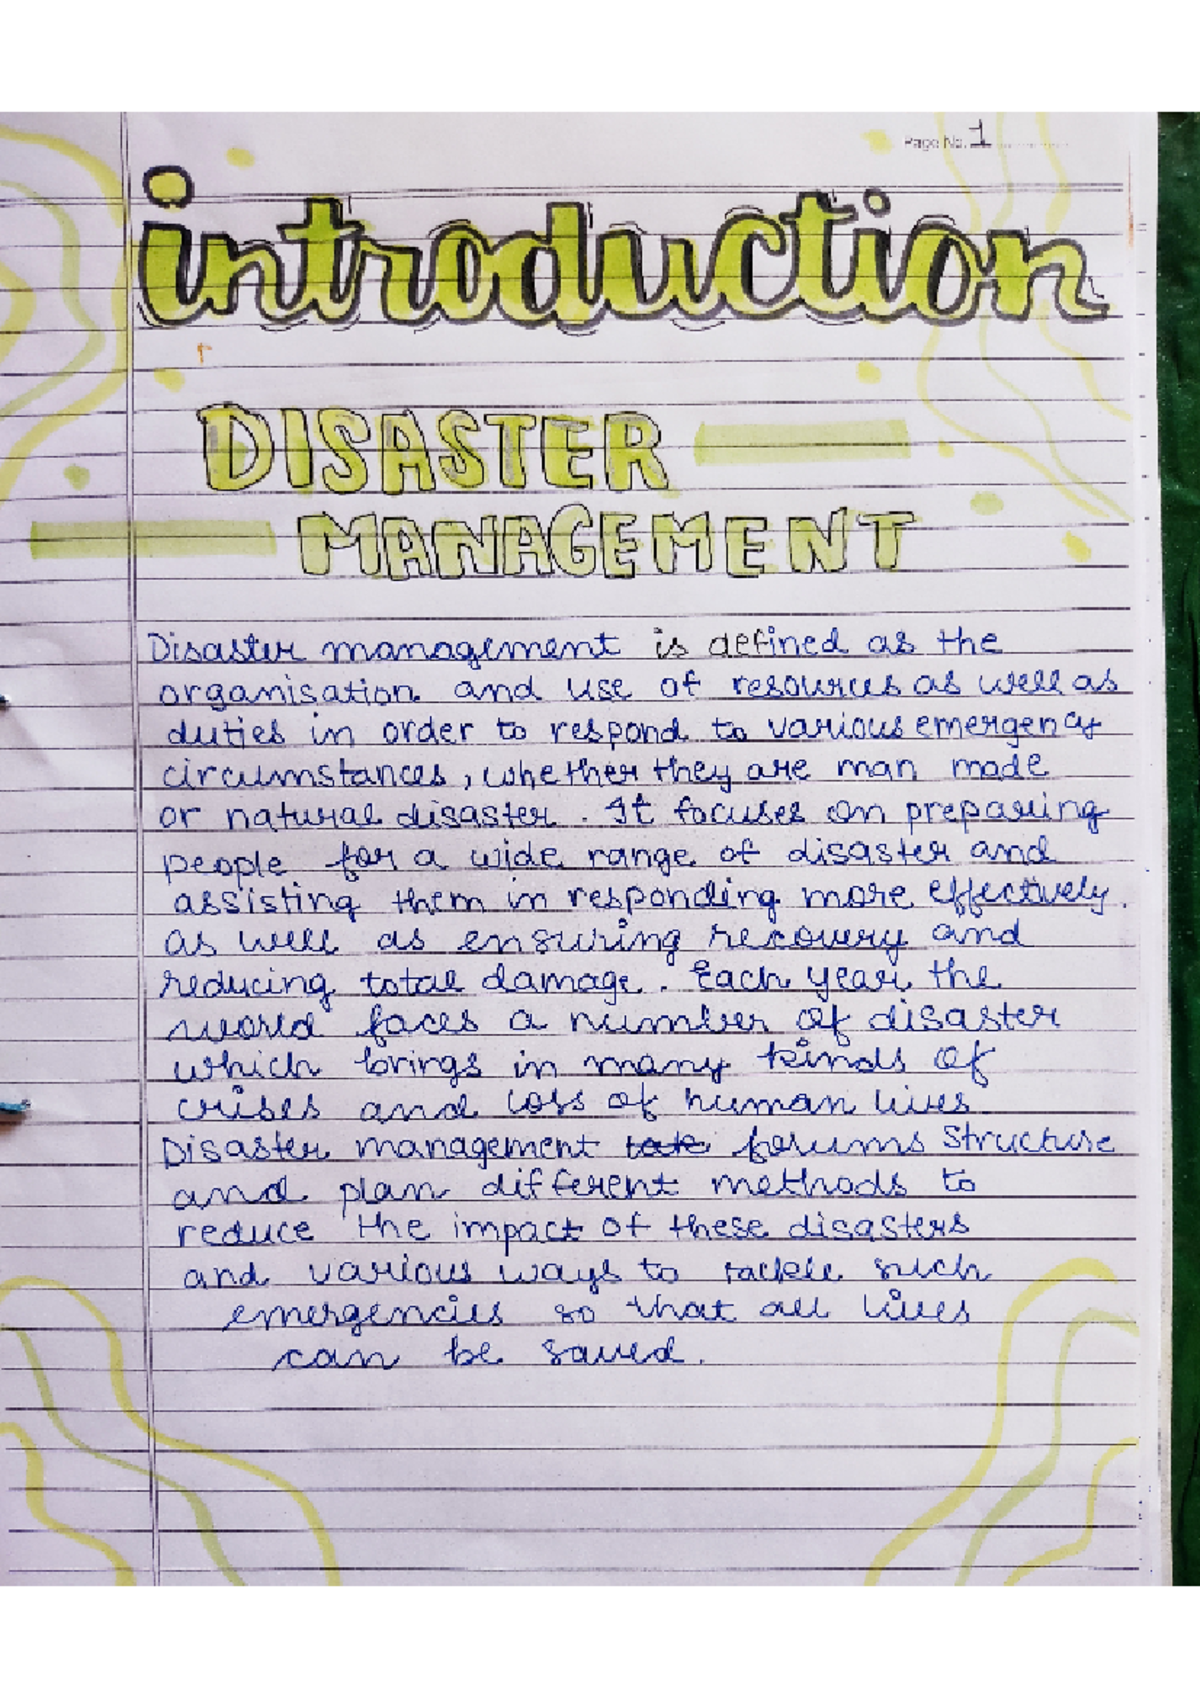 Page No. 1
introduction
DISASTER
MANAGEMENT
Disaster management is defined as the
organisation and use of resources as well as
duties in order to respond to various emergency
circumstances, whether they are man made
or natural disaster. It focuses on preparing
people for a wide range of disaster and
assisting them in responding more effectively.
as well as ensuring recovery and
reducing total damage. Each year, the
world faces a number of disaster
which brings in many kinds of
crises and loss of human lives.
Disaster management forums structure
and plan different methods to
reduce the impact of these disasters
and various ways to tackle such
emergencies so that all lives
can be saved.